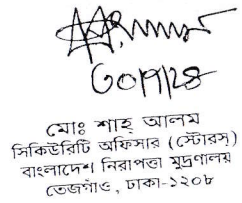 ৩০/৭/২৪
মোঃ শাহ্ আলম
সিকিউরিটি অফিসার (স্টোরস্)
বাংলাদেশ নিরাপত্তা মুদ্রণালয়
তেজগাঁও, ঢাকা-১২০৮